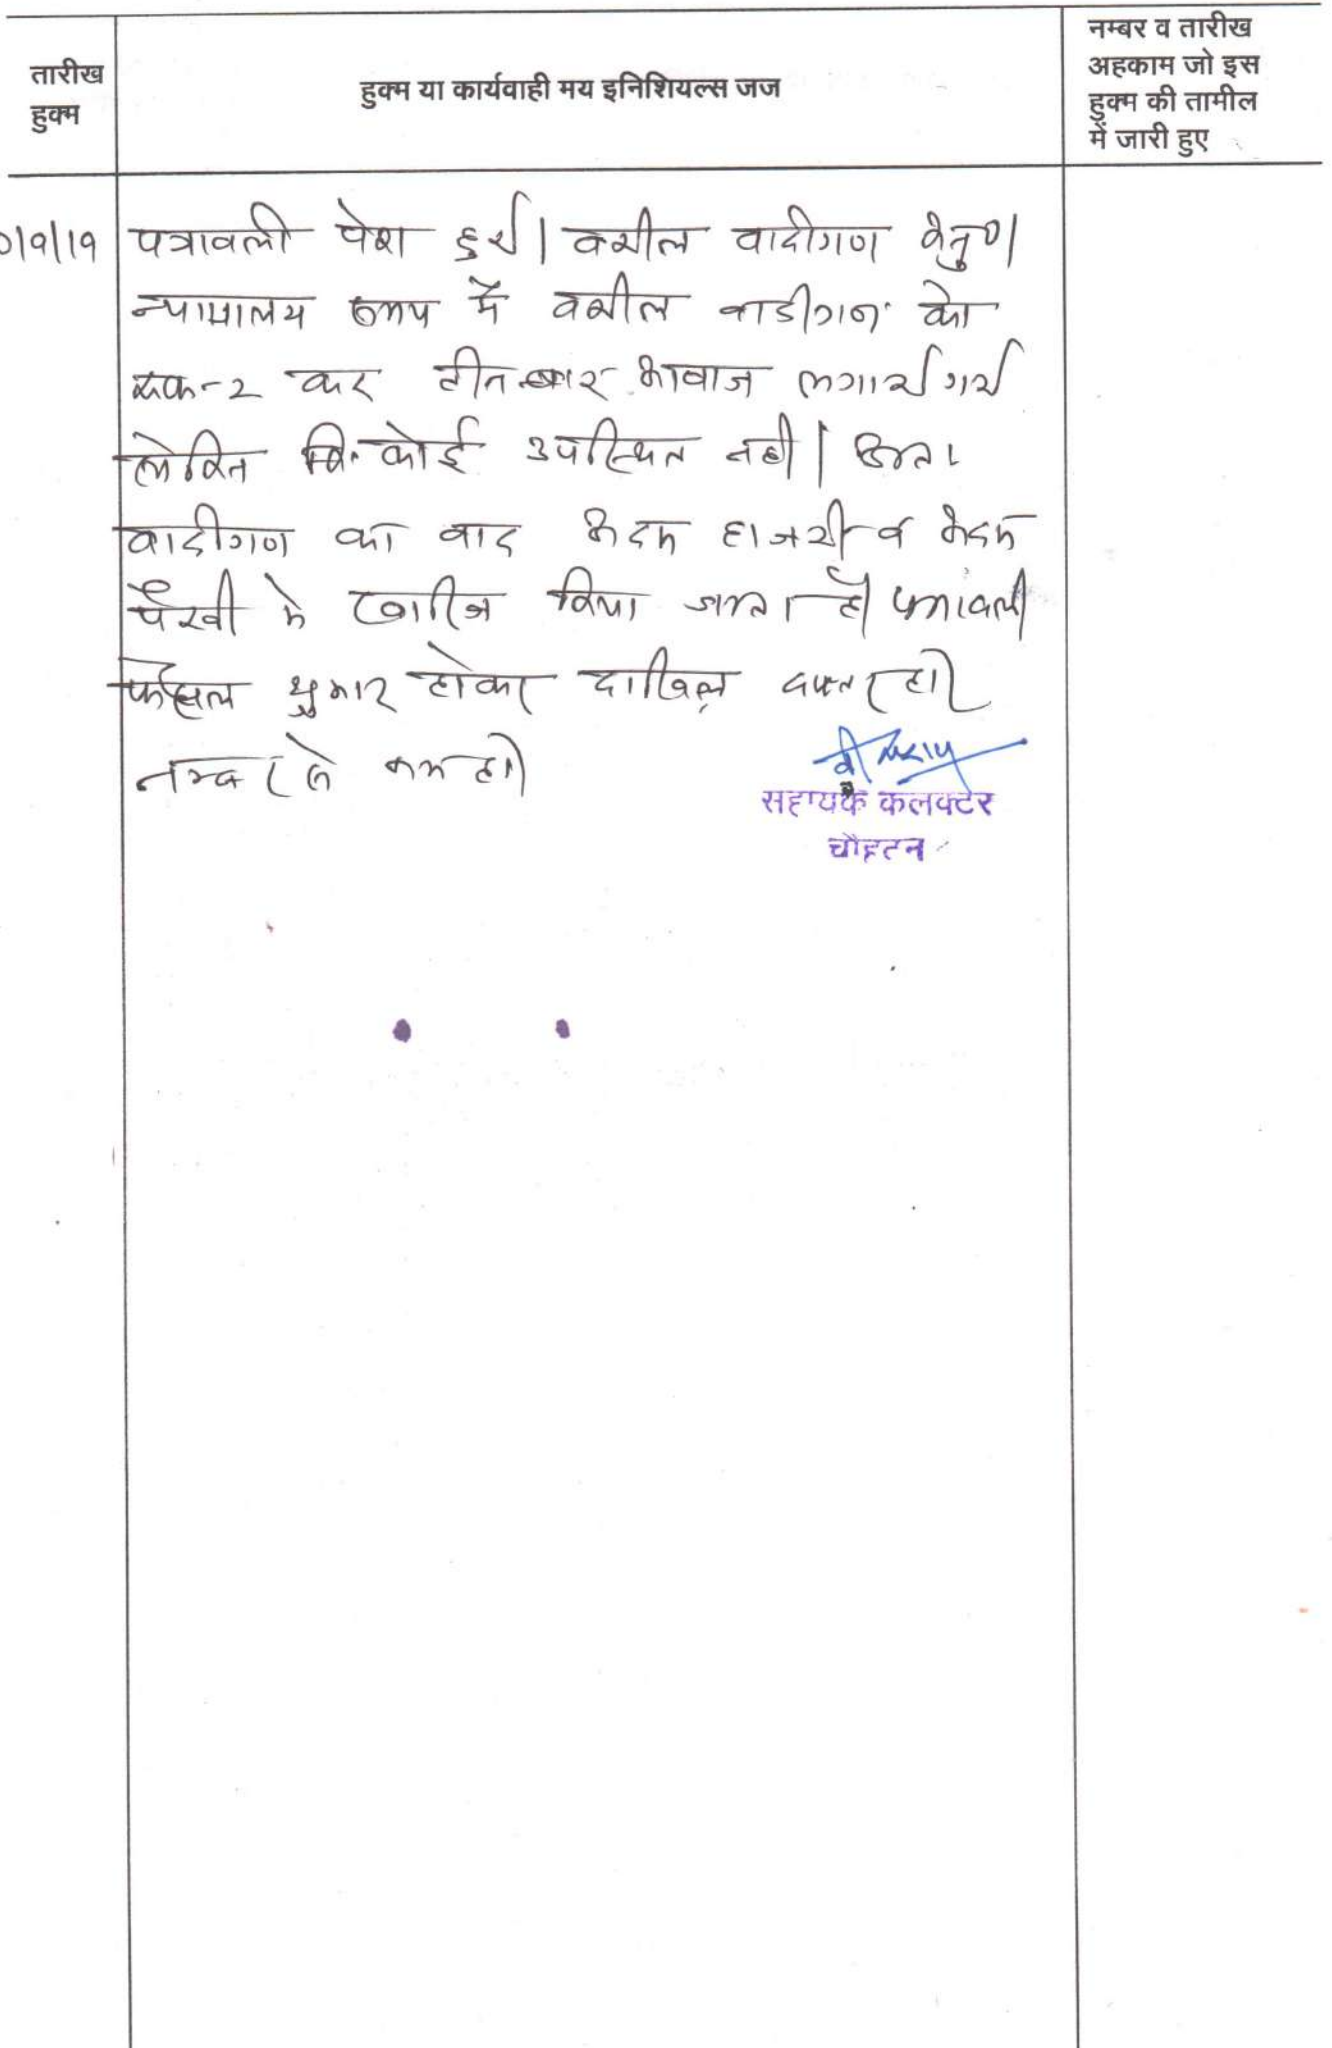 तारीख
हुक्म
हुक्म या कार्यवाही मय इनिशियल्स जज
नम्बर व तारीख
अहकाम जो इस
हुक्म की तामील
में जारी हुए
0/9/19 पत्रावली पेश हुई। वकील वादीगण
न्यायालय समय में वकील वादीगण को
एक-2 कर तीन बार आवाज लगाई गई
लेकिन कोई उपस्थित नही। अतः
वादीगण का वाद अदम हाजरी व अदम
पैरवी में खारिज किया जाता है। पत्रावली
फैसल शुमार होकर दाखिल दफ्तर हो।
नम्बर से कम हो।
सहायक कलक्टर
चौहटन